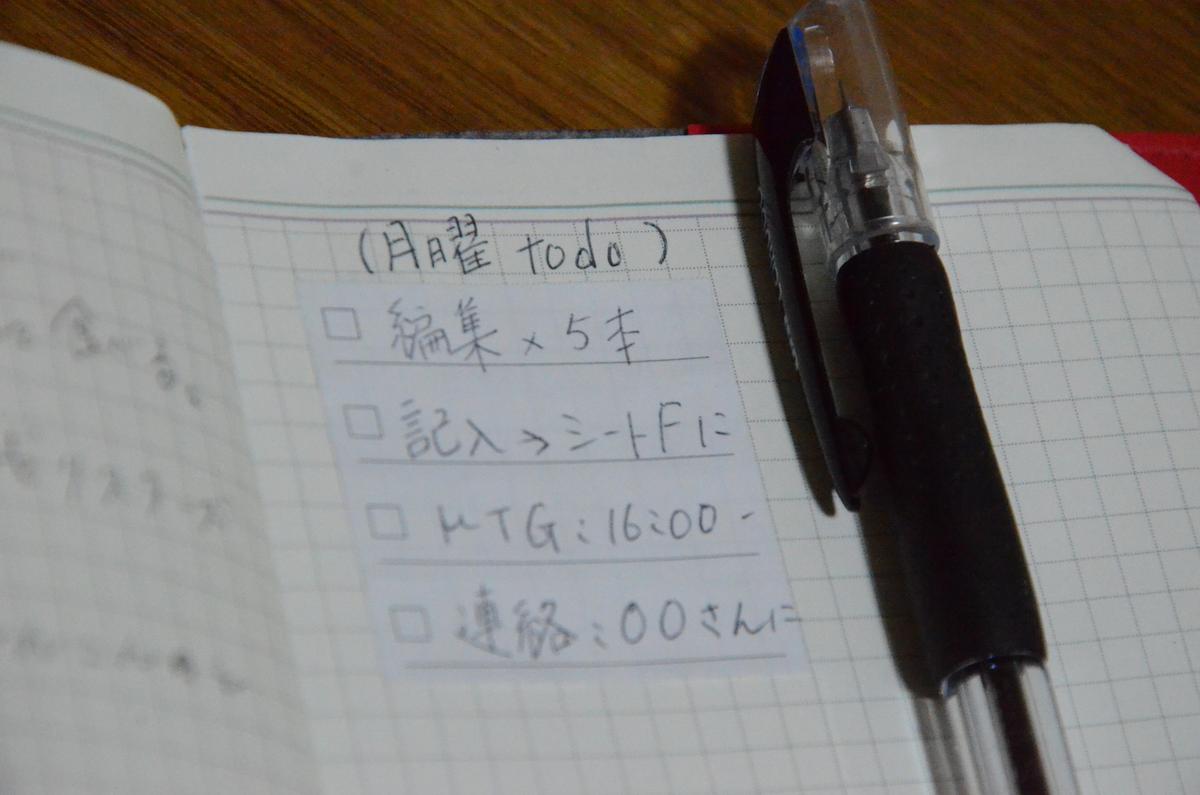 (月曜 todo)
□ 編集 × 5本
□ 記入→シートFに
□ MTG:16:00-
□ 連絡:〇〇さんに